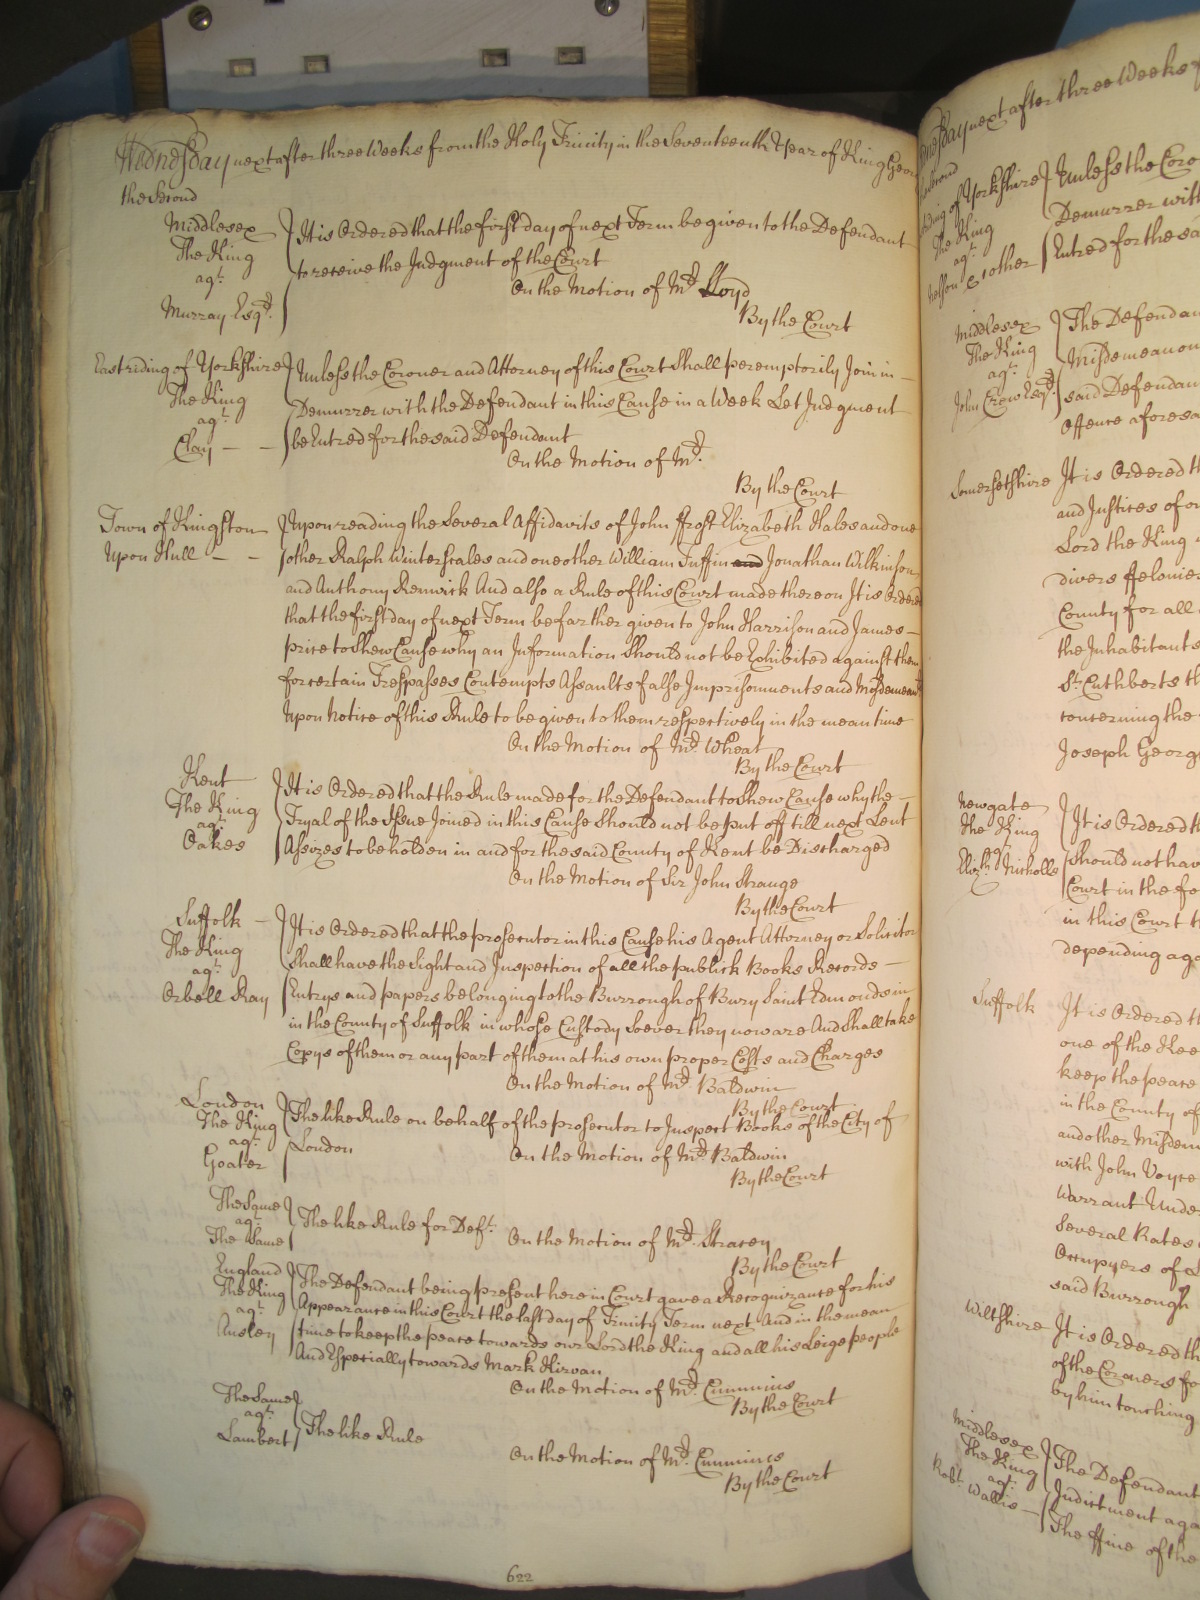 Wednesday next after three Weeks from the Holy Trinity in the Seventeenth Year of King Geor
the Second
Middlesex
The King
agt.
Murray Esqr.
It is Ordered that the first day of next Term be given to the Defendant
to receive the Judgment of the Court
On the Motion of Mr. Lloyd
By the Court
East riding of Yorkshire
The King
agt.
Clay
Unless the Coroner and Attorney of this Court Shall peremptorily Join in
Demurrer with the Defendant in this Cause in a Week Let Judgment
be Entred for the said Defendant
On the Motion of Mr.
By the Court
Town of Kingston
Upon Hull
Upon reading the Several Affidavits of John ffrost Elizabeth Hales and one
other Ralph Winterscales and one other William Tuffin and Jonathan Wilkinson
and Anthony Renwick And also a Rule of this Court made thereon It is Ordered
that the first day of next Term be farther given to John Harrison and James
price to Shew Cause why an Information Should not be Exhibited against them
for certain Trespasses Contempts Assaults false Imprisonments and Misdemeanrs
Upon Notice of this Rule to be given to them respectively in the mean time
On the Motion of Mr. Wheat
By the Court
Kent
The King
agt.
Oakes
It is Ordered that the Rule made for the Defendant to Shew Cause why the
Tryal of the Issue Joined in this Cause Should not be put off till next Lent
Assizes to be holden in and for the said County of Kent be Discharged
On the Motion of Sir John Strange
By the Court
Suffolk
The King
agt.
Orbell Ray
It is Ordered that the prosecutor in this Cause his Agent Attorney or Solicitor
Shall have the Sight and Inspection of all the publick Books Records
Entrys and papers belonging to the Burrough of Bury Saint Edmonds in
in the County of Suffolk in whose Custody Soever they now are And Shall take
Copys of them or any part of them at his own proper Costs and Charges
On the Motion of Mr. Baldwin
By the Court
London
The King
agt.
Goater
The like Rule on behalf of the prosecutor to Inspect Books of the City of
London
On the Motion of Mr. Baldwin
By the Court
The Same
agt.
The Same
The like Rule for Deft.
On the Motion of Mr. Stracey
By the Court
England
The King
agt.
Ansley
The Defendant being present here in Court gave a Recognizance for his
Appearance in this Court the last day of Trinity Term next And in the mean
time to keep the peace towards our Lord the King and all his Leige people
And Especially towards Mark Kirvan
On the Motion of Mr. Cummins
By the Court
The Same
agt.
Lambert
The like Rule
On the Motion of Mr. Cummins
By the Court
622
nesday next after three Weeks
Second
iding of Yorkshire
The King
agt.
& other
Unless the Coro
Demurrer with
Entred for the sa
Middlesex
The King
agt.
John Crew Esqr.
The Defendan
Misdemeanour
said Defendan
Offence aforesa
Somersetshire
It is Ordered th
and Justices of o
Lord the King
divers ffelonies
County for all
the Inhabitants
St. Cuthberts th
concerning the
Joseph Georg
Newgate
The King
agt.
Elizth. Nicholls
It is Ordered th
Should not have
Court in the fo
in this Court t
depending aga
Suffolk
It is Ordered th
one of the Kee
keep the peace
in the County of
and other Misdem
with John Voyce
Warrant Under
Several Rates
Occupyers of L
said Burrough
Wiltshire
It is Ordered th
of the Coroners fo
by him touching
Middlesex
The King
agt.
Robt. Wallis
The Defendant
Indictment aga
The ffine of the